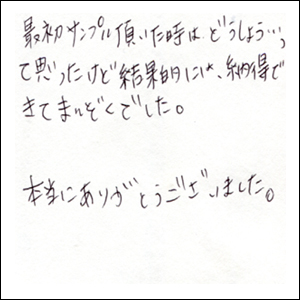 最初サンプル頂いた時は、どうしよう…っ
て思ったけど結果的には、納得で
きてまんぞくでした。
本当にありがとうございました。